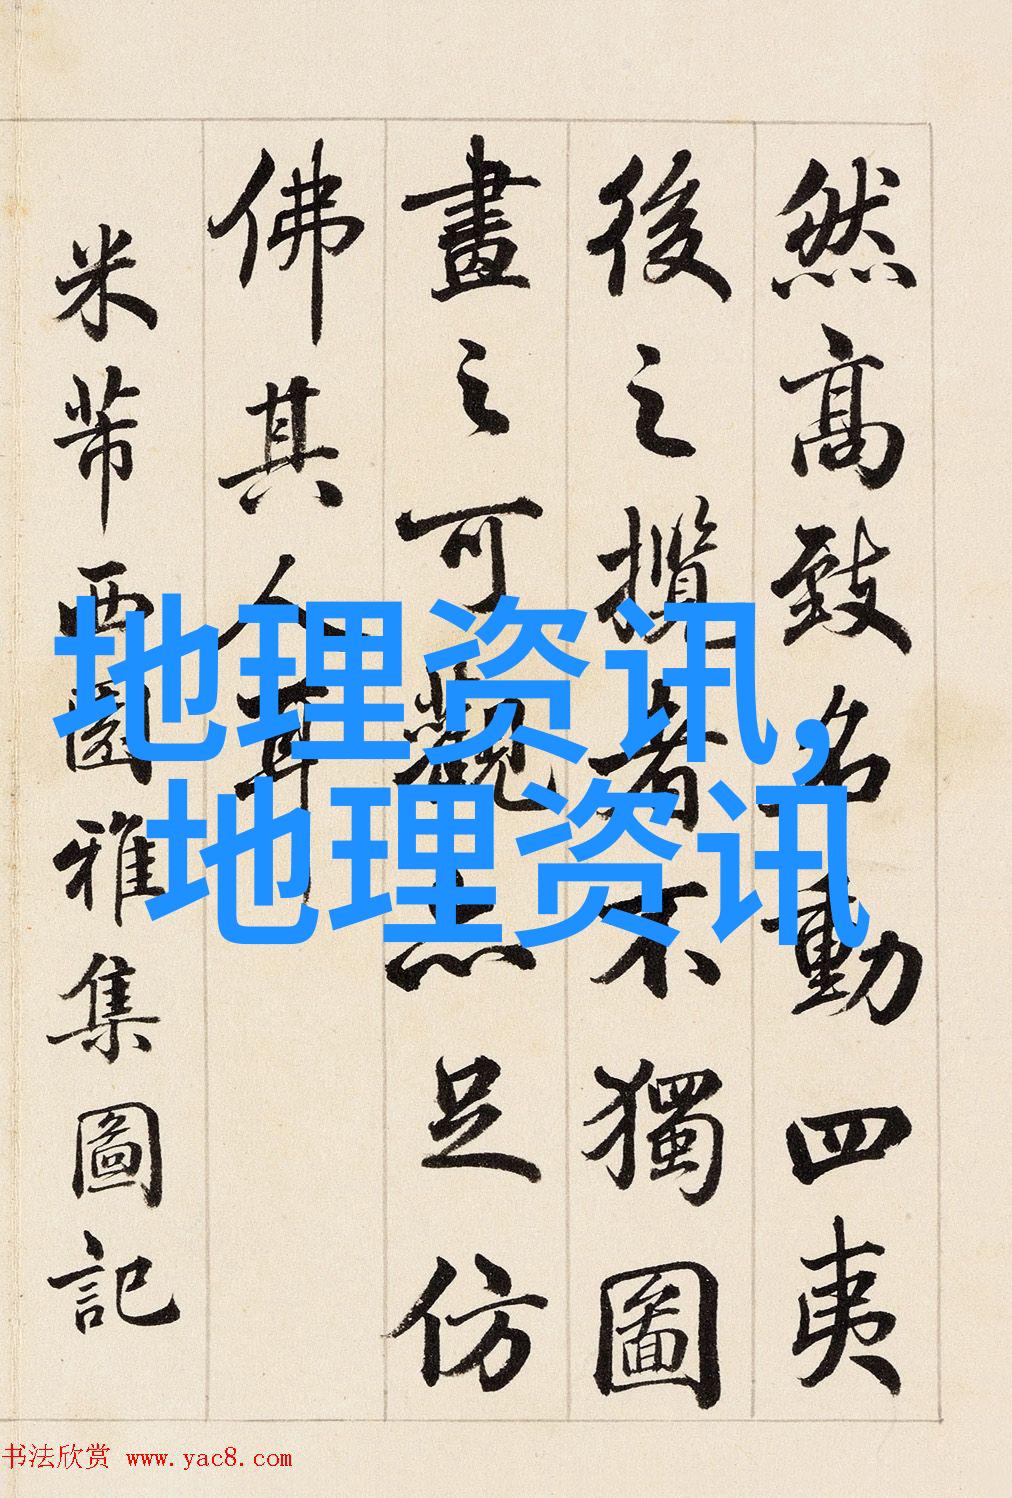 然高致名動四夷
後之攬者不獨圖
畫之可觀亦足仿
佛其人耳
米芾西園雅集圖記
地理资讯,
地理资讯
书法欣赏 www.yac8.com